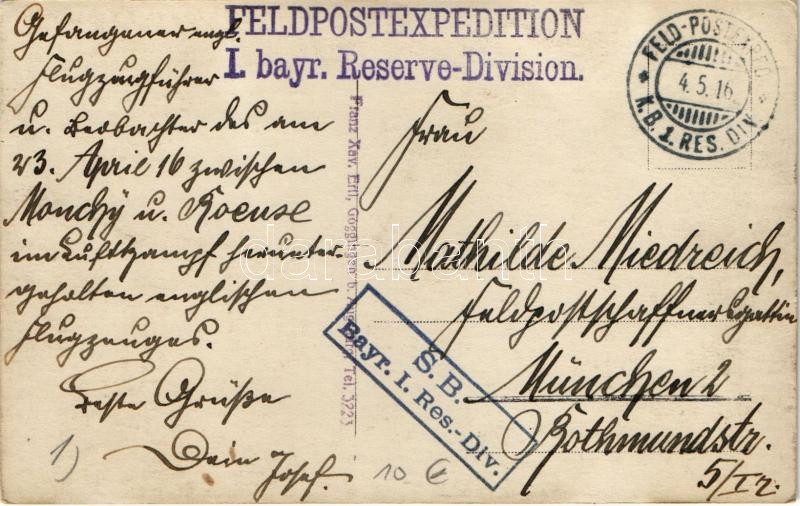 FELDPOSTEXPEDITION
I. bayr. Reserve-Division.
FELD-POSTEXPED.
4.5.16
K.B. 1. RES. DIV.
Gefangener engl.
Flugzeugführer
u. Beobachter des am
23. April 16 zwischen
Monchÿ u. Roeuse
im Luftkampf herunter-
geholten englischen
Flugzeuges.
beste Grüße
Dein Josef.
1)
10 €
Franz Xav. Ertl, Göggingen b. Augsburg Tel. 3223
Frau
Mathilde Miedreich,
Feldpostschaffnersgattin
München 2
Rothmundstr.
5/I r.
S. B.
Bayr. I. Res.-Div.
darabanth